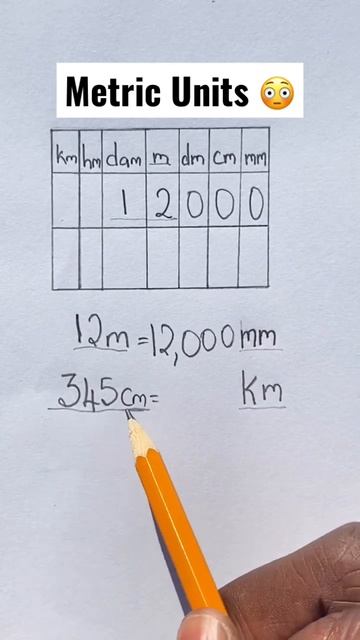 Metric Units 😳
km hm dam m dm cm mm
1 2 0 0 0
12m = 12,000mm
345cm= Km